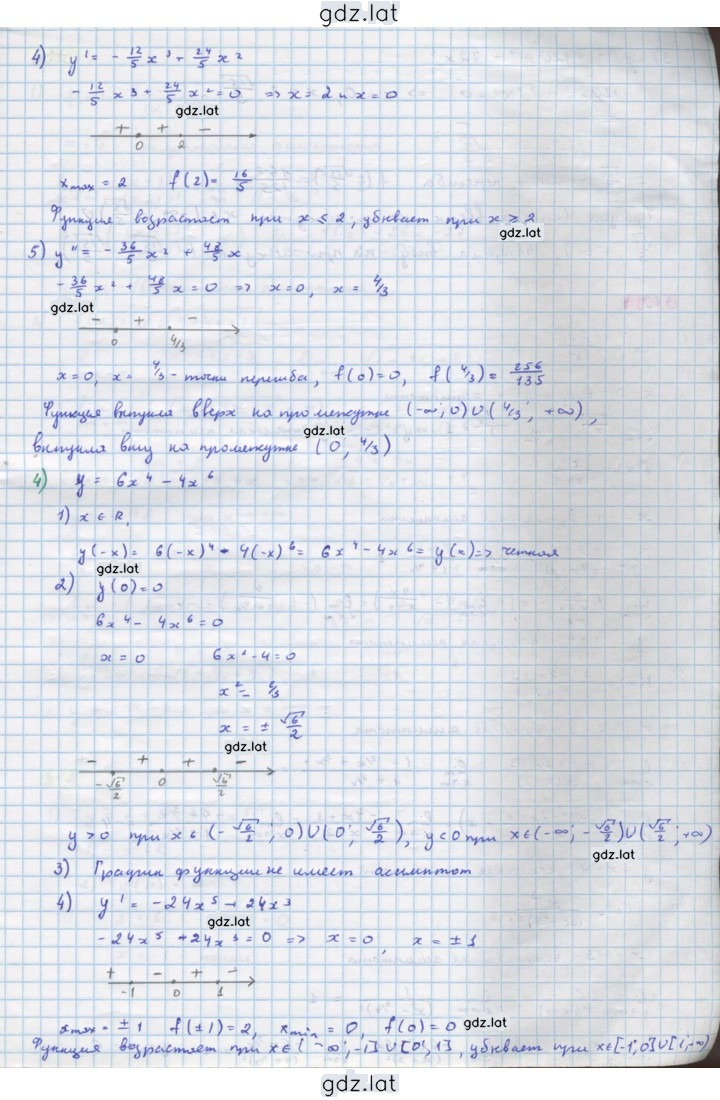 gdz.lat
4) y' = - 12/5 x³ + 24/5 x²
- 12/5 x³ + 24/5 x² = 0 => x = 2 и x = 0
gdz.lat
+ + -
0 2
x max = 2 f(2) = 16/5
Функция возрастает при x ≤ 2, убывает при x ≥ 2
gdz.lat
5) y'' = - 36/5 x² + 48/5 x
- 36/5 x² + 48/5 x = 0 => x = 0, x = 4/3
gdz.lat
- + -
0 4/3
x = 0, x = 4/3 - точки перегиба, f(0) = 0, f(4/3) = 256/135
Функция выпукла вверх на промежутке (-∞; 0) ∪ (4/3; +∞),
gdz.lat
выпукла вниз на промежутке (0; 4/3)
4) y = 6x⁴ - 4x⁶
1) x ∈ R,
y(-x) = 6(-x)⁴ - 4(-x)⁶ = 6x⁴ - 4x⁶ = y(x) => четная
gdz.lat
2) y(0) = 0
6x⁴ - 4x⁶ = 0
x = 0 6x² - 4 = 0
x² = 6/3
x = ± √6/2
gdz.lat
- + + -
- √6/2 0 √6/2
y > 0 при x ∈ (- √6/2; 0) ∪ (0; √6/2), y < 0 при x ∈ (-∞; - √6/2) ∪ (√6/2; +∞)
gdz.lat
3) График функции не имеет асимптот
4) y' = -24x⁵ + 24x³
gdz.lat
-24x⁵ + 24x³ = 0 => x = 0, x = ± 1
+ - + -
-1 0 1
x max = ± 1 f(± 1) = 2, x min = 0, f(0) = 0
gdz.lat
Функция возрастает при x ∈ (-∞; -1] ∪ [0; 1], убывает при x ∈ [-1; 0] ∪ [1; +∞)
gdz.lat